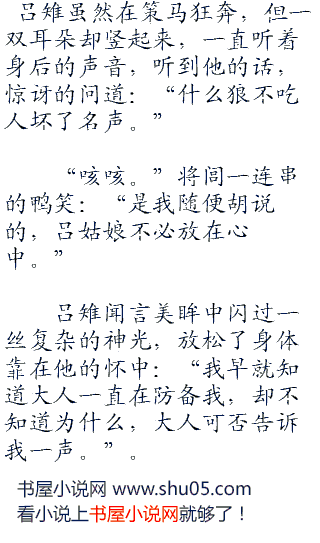 吕雉虽然在策马狂奔，但一
双耳朵却竖起来，一直听着
身后的声音，听到他的话，
惊讶的问道：“什么狼不吃
人坏了名声。”
“咳咳。”将闾一连串
的鸭笑：“是我随便胡说
的，吕姑娘不必放在心
中。”
吕雉闻言美眸中闪过一
丝复杂的神光，放松了身体
靠在他的怀中：“我早就知
道大人一直在防备我，却不
知道为什么，大人可否告诉
我一声。”。
书屋小说网 www.shu05.com
看小说上书屋小说网就够了！